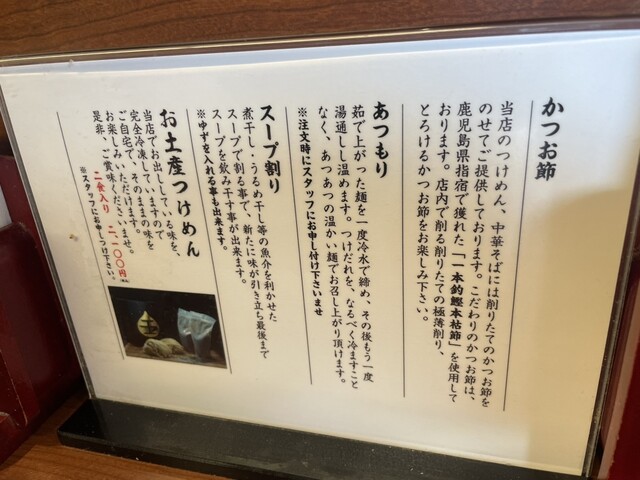 かつお節
当店のつけめん、中華そばには削りたてのかつお節を
のせてご提供しております。こだわりのかつお節は、
鹿児島県指宿で獲れた「一本釣鰹本枯節」を使用して
おります。店内で削る削りたての極薄削り、
とろけるかつお節をお楽しみ下さい。
あつもり
茹で上がった麺を一度冷水で締め、その後もう一度
湯通しし温めます。つけだれを、なるべく冷ますこと
なく、あつあつの温かい麺でお召し上がり頂けます。
※注文時にスタッフにお申し付け下さいませ
スープ割り
煮干し・うるめ干し等の魚介を利かせた
スープで割る事で、新たに味が引き立ち最後まで
スープを飲み干す事が出来ます。
※ゆずを入れる事も出来ます。
お土産つけめん
当店でお出ししている味を、
完全冷凍していますので
ご自宅で、そのままの味を
お楽しみいただけます。
是非、ご賞味くださいませ。
二食入り 二、一〇〇円(税込)
※スタッフにお申しつけ下さい。